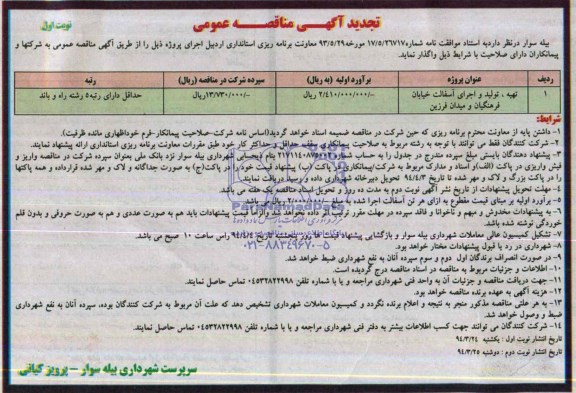 تجدید آگهی مناقصه عمومی
نوبت اول
بیله سوار درنظر دارد به استناد موافقت نامه شماره ۱۷/۵/۲۶۷۱۷ مورخه ۹۳/۵/۲۹ معاونت برنامه ریزی استانداری اردبیل اجرای پروژه ذیل را از طریق آگهی مناقصه عمومی به شرکتها و
پیمانکاران دارای صلاحیت با شرایط ذیل واگذار نماید.
ردیف عنوان پروژه برآورد اولیه (به ریال) سپرده شرکت در مناقصه (ریال) رتبه
۱ تهیه ، تولید و اجرای آسفالت خیابان فرهنگیان و میدان فرزین ۲/۴۱۰/۰۰۰/۰۰۰/- ریال ۱۳/۷۳۰/۰۰۰/- ریال حداقل دارای رتبه ۵ رشته راه و باند
شرایط:
۱- داشتن پایه از معاونت محترم برنامه ریزی که حین شرکت در مناقصه ضمیمه اسناد خواهد گردید(اساس نامه شرکت-صلاحیت پیمانکار-فرم خوداظهاری مانده ظرفیت).
۲- شرکت کنندگان فقط می توانند با توجه به رشته مربوط به صلاحیت پیمانکاری سقف حداقل و حداکثر کار خود طبق مقررات معاونت برنامه ریزی استانداری ارائه پیشنهاد نمایند.
۳- پیشنهاد دهندگان بایستی مبلغ سپرده مندرج در جدول را به حساب شماره بنام شهرداری بیله سوار نزد بانک ملی بعنوان سپرده شرکت در مناقصه واریز و
فیش واریزی در پاکت (الف) اسناد و مدارک مربوط به شرکت/پیمانکاری در پاکت (ب) پیشنهاد قیمت خود را در پاکت(ج) به صورت جداگانه و لاک و مهر شده قرارداده و همه پاکتها
را در پاکت بزرگ و لاک و مهر شده تا تاریخ ۹۴/۴/۳ تحویل دبیرخانه شهرداری داده و رسید دریافت نمایند.
۴- مهلت تحویل پیشنهادات از تاریخ نشر آگهی نوبت دوم به مدت ده روز و تحویل اسناد مناقصه یک هفته می باشد.
۵- برآورد اولیه بر مبنای قیمت مقطوع به ازای هر تن آسفالت اجرا شده به مبلغ ریال می باشد.
۶- به پیشنهادات مخدوش و مبهم و ناخوانا و فاقد سپرده در مهلت مقرر ترتیب اثر داده نخواهد شد والزاما قیمت پیشنهادات باید هم به صورت عددی و هم به صورت حروفی و بدون قلم
خوردگی نوشته شده باشد.
۷- تشکیل کمیسیون عالی معاملات شهرداری بیله سوار و بازگشایی پیشنهاد قیمت ها روز پنجشنبه تاریخ ۹۴/۴/۴ راس ساعت ۱۰ صبح می باشد.
۸- شهرداری در رد یا قبول پیشنهادات مختار خواهد بود.
۹- در صورت انصراف برندگان اول دوم و سوم سپرده آنان به نفع شهرداری ضبط خواهد شد.
۱۰- اطلاعات و جزئیات مربوط به مناقصه در اسناد مناقصه درج گردیده است.
۱۱- جهت دریافت مناقصه و جزئیات آن به واحد فنی شهرداری مراجعه و یا با شماره تلفن ۰۴۵۳۲۸۲۲۹۹۸ تماس حاصل نمایند.
۱۲- هزینه آگهی به عهده برنده مناقصه خواهد بود.
۱۳- به هر علتی مناقصه مذکور منجر به نتیجه و اعلام برنده نگردد و کمیسیون معاملات شهرداری تشخیص دهد که علت آن مربوط به شرکت کنندگان بوده، سپرده آنان به نفع شهرداری
ضبط و وصول خواهد شد.
۱۴- شرکت کنندگان می توانند جهت کسب اطلاعات بیشتر به دفتر فنی شهرداری مراجعه و یا با شماره تلفن ۰۴۵۳۲۸۲۲۹۹۸ تماس حاصل نمایند.
تاریخ انتشار نوبت اول : یکشنبه ۹۴/۳/۲۴
تاریخ انتشار نوبت دوم : دوشنبه ۹۴/۳/۲۵
سرپرست شهرداری بیله سوار - پرویز کیانی
ParsNamadData
۰۲۱-۸۸۳۴۹۶۷۰-۵